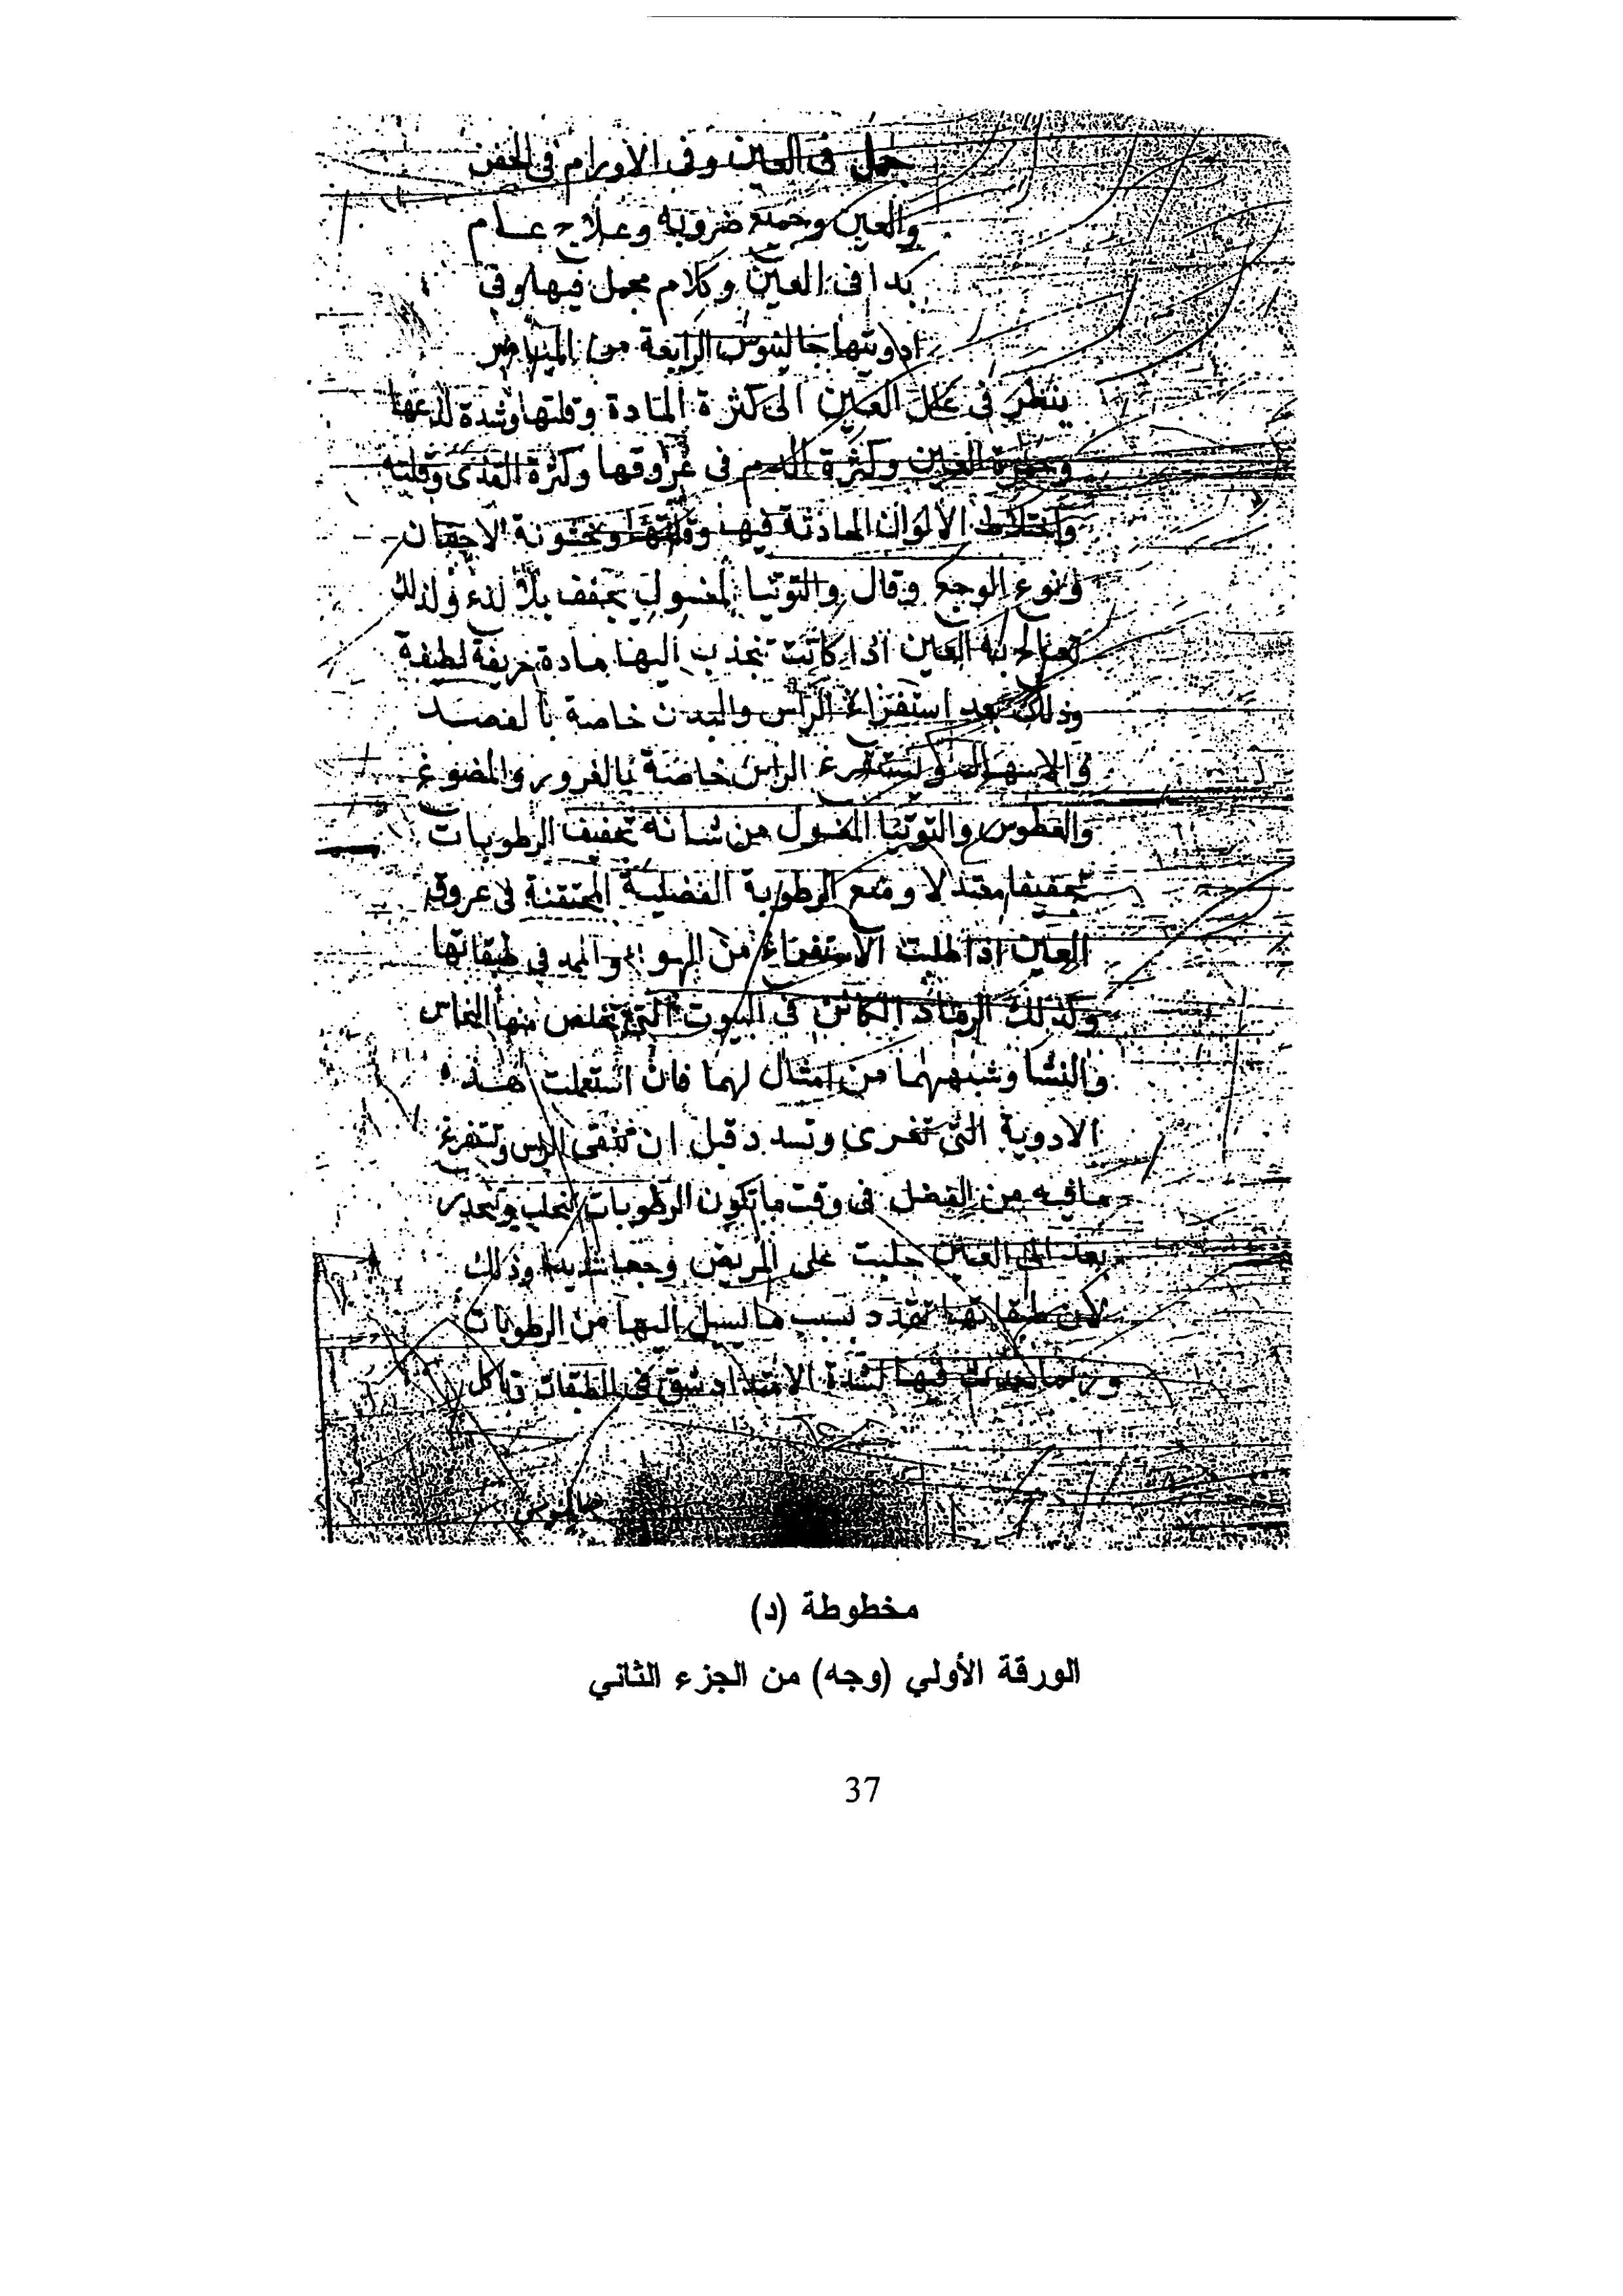 جمل في العين وفى الاورام في الجفن
والعين وجميع ضروبه وعلاج عام
فى العين وكلام مجمل فيها وفى
ادويتها جالينوس الرابعة من الميامر
ينظر فى علل العين الى كثرة المادة وقلتها وشدة لذعها
وحمرة العين وكثرة الدم فى عروقها وكثرة القذى وقلته
واختلاط الالوان الحادثة فيها وقلتها وخشونة الاجفان
ونوع الوجع وقال والتوتيا المغسول يجفف بلا لذع ولذلك
تعالج به العين اذا كانت تنجذب اليها مادة حريفة لطيفة
وذلك بعد استفراغ الراس والبدن خاصة بالفصد
والاسهال ويستفرغ الراس خاصة بالغرور والمضوغ
والعطوس والتوتيا المغسول من شانه تجفيف الرطوبات
تجفيفا معتدلا ومنع الرطوبة الفضلية المحتقنة فى عروق
العين اذا طلبت الاستفراغ من فى طبقاتها
وكذلك الرماد الكائن فى البيوت التى يخلص منها النحاس
والنشا وشبههما من امثال لهما فان استعملت هذه
الادوية التى تغرى وتسدد قبل ان تنقى الراس وتستفرغ
مافيه من الفضل فى وقت ماتكون الرطوبات تتحلب وتنحدر
بعد الى العين جلبت على المريض وجعا شديدا وذلك
لان طبقاتها تمدد بسبب مايسيل اليها من الرطوبات
وربما حدث فيها لشدة الامتداد شق فى الطبقات وتاكل
مخطوطة (د)
الورقة الأولي (وجه) من الجزء الثاني
37